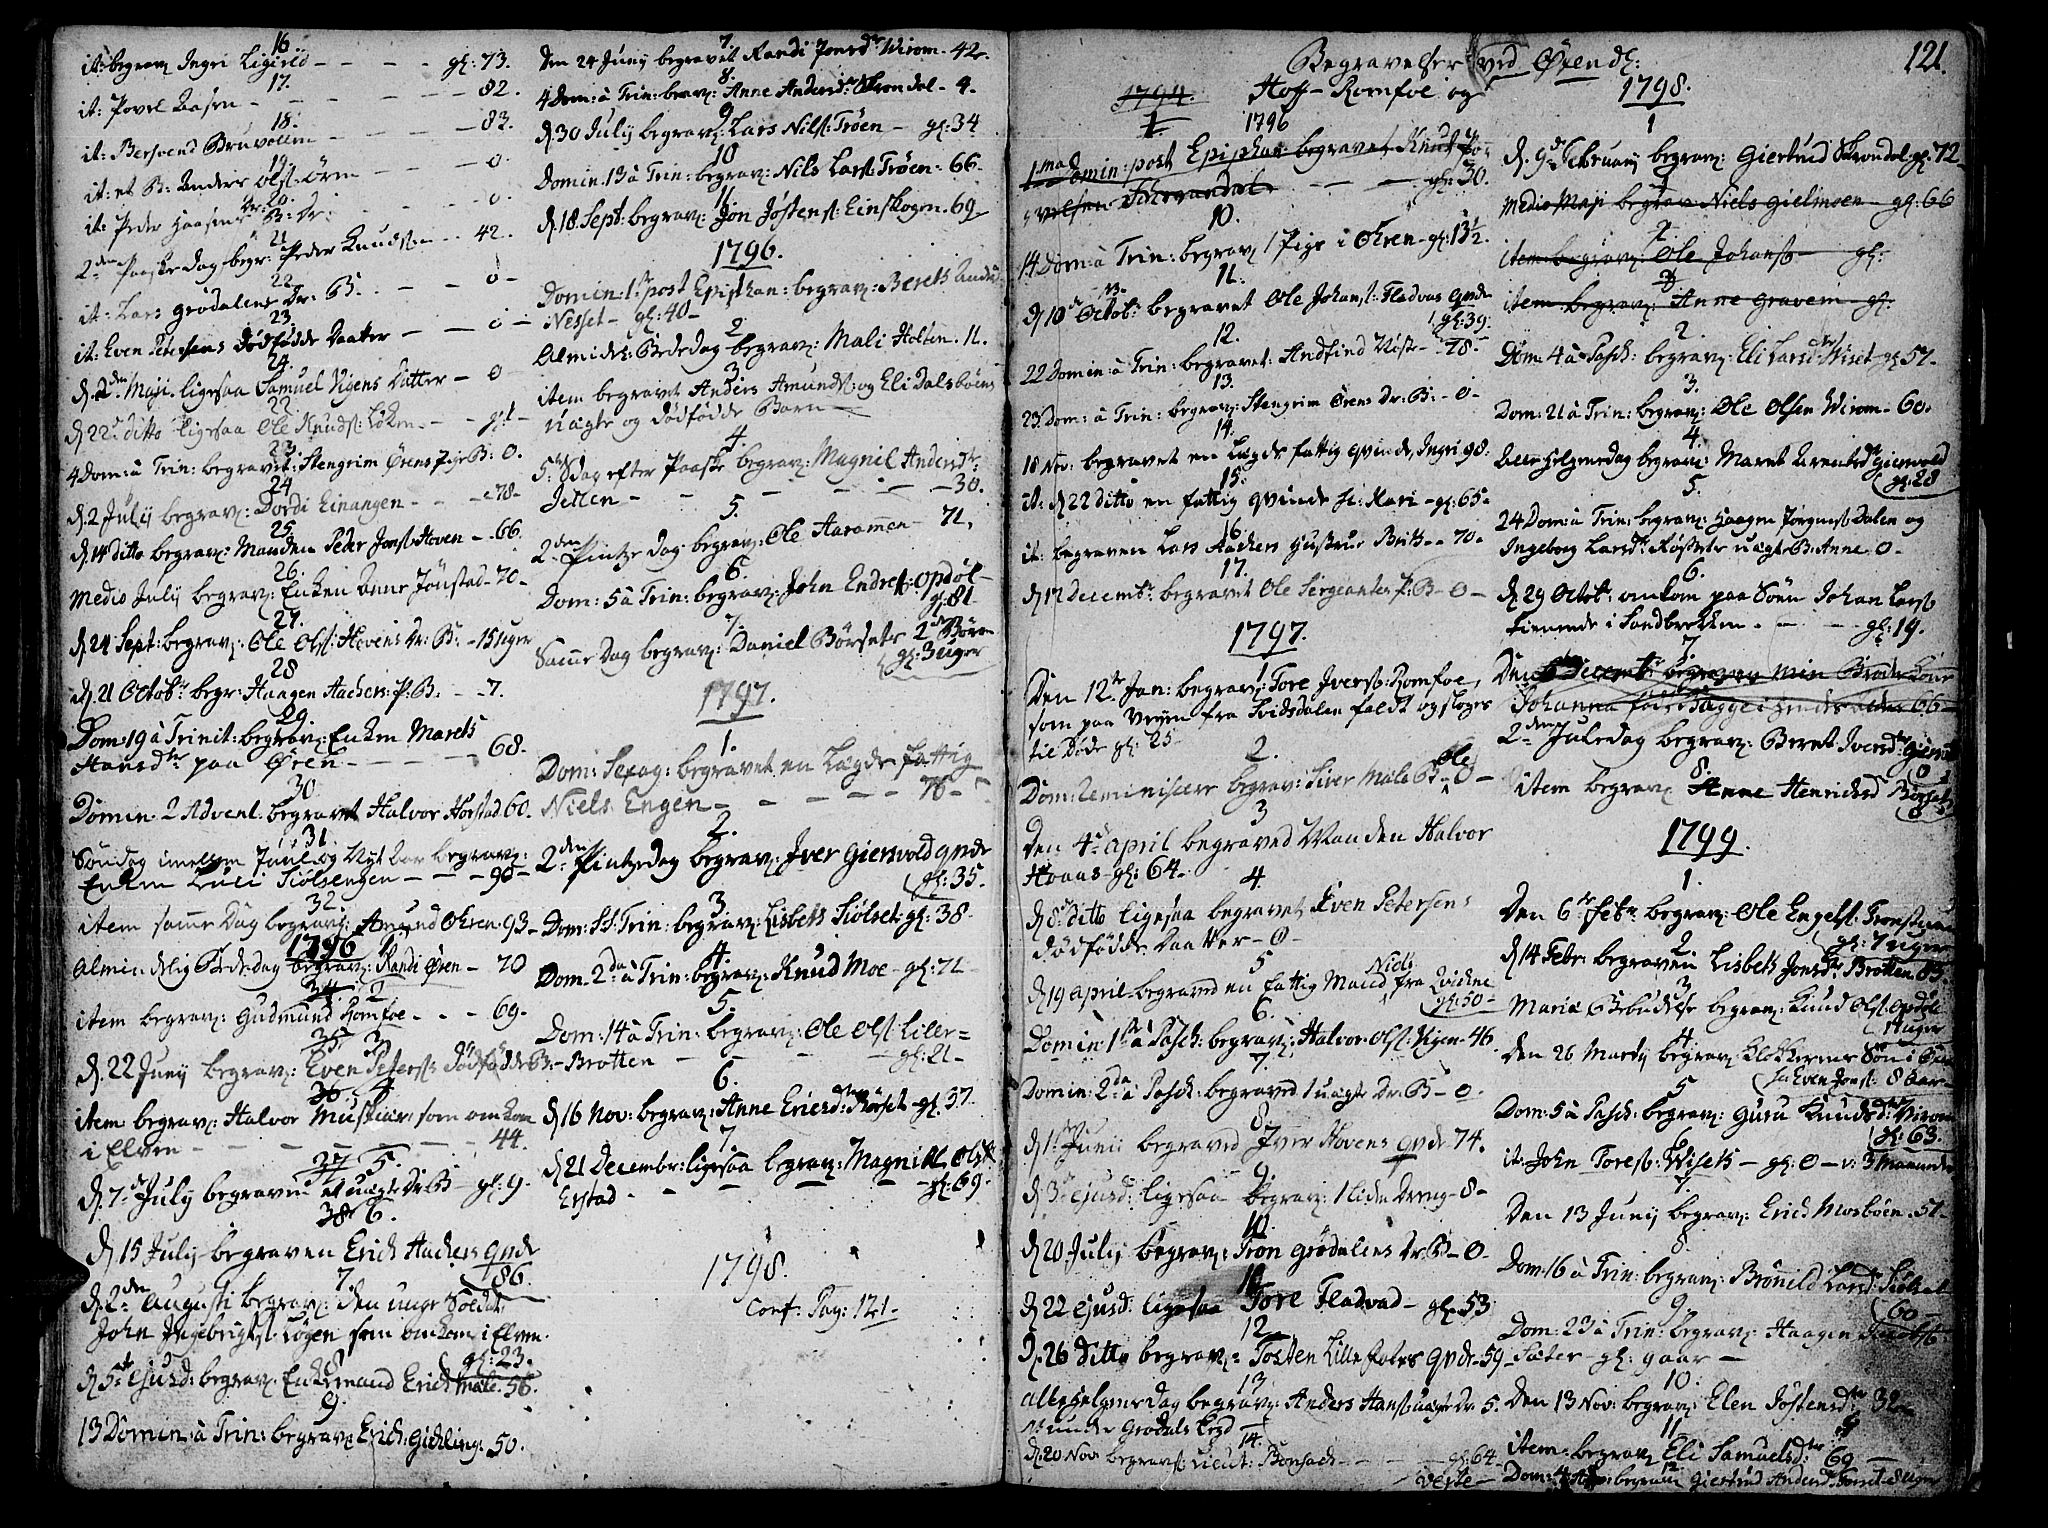 16
it: begrav: Ingri Ligield - - - - gl: 73.
17.
it: Povel Aasen - - - - 82.
18.
it: Bersvend Bruvollen - - - - 83.
19
it: et B: Anders Olss: Ørn - - - 0.
20.
it: Peder Haasens B: Dr: - - - 0.
21
2den Paaskedag begr: Peder Knuds:n - - 42.
22
it: Lars Grødalens Dr: B. - - - 0 -
23.
it: Even Petersens dødfødde Daater - - - 0 -
24.
d. 2den Maji ligesaa Samuel Vigens Datter - 0
22
d. 22de ditto ligesaa Ole Knuds: Løken - - gl: -
23
4 Dom: à Trin: begravet: Stengrim Ørens pige B: 0.
24
d. 2 July begrav: Dordi Einangen - - - 78 -
25
d. 14 ditto begrav: Manden Peder Jons: Hoven - 66.
26.
Medio July begrav: Enken Anne Jønstad - 70 -
27.
d. 24 Sept: begrav: Ole Ols: Hovens Dr: B: - 15 uger
28
d. 21 Octobr begr: Haagen Aachens P. B. - - 7.
29.
Dom: 19 à Trinit: begrav: Enken Marets
Hansdtr paa Øren - - - - 68.
30.
Domin: 2 Advent. begravet Halvor Horstad 60.
31.
Søndag imellem Juul og Nyt Aar begrav:
Enken Luci Siølsengen - - - 90 -
32.
item samme Dag begrav: Amund Øhren 93 -
1796 1
Almindelig Bededag begrav: Randi Øren - 70
34. 2
item begrav: Gudmund Romfoe - - - 69 -
35 3
d. 22 Juny begrav: Even Peters: dødfødde B: -
36 4
item begrav: Halvor Musikar: som omkom
i Elven - - - - 44.
37 5.
d. 7de July begraven et uægte Dr: B - gl: 9 -
38 6.
d. 15 July begraven Erich Hachens qvde
86.
7.
d. 2den Augusti begrav: den unge Soldat
John Ingebrigts: Løgen som omkom i Elven.
gl: 23.
8
d. 5te ejusd: begrav: Enkemand Erich Male. 56.
9.
13 Domin: à Trin: begrav: Erich Gickling: 50.
7
den 24 Juny begravet Randi Jonsdtr Wirom - 42.
8.
4 Dom: à Trin: begrav: Anne Andersdr Skrondal - 4.
9
d. 30 July begrav: Lars Nils: Trøen - gl: 34
10
Domin: 13 à Trin: begrav: Nils Lars: Trøen - 66.
11
d. 18 Sept: begrav: Jon Jøstens: Einskogen. 69
1796.
1
Domin: 1ste post Epiphan: begrav: Bereth
i Nesset - gl: 40 -
2.
Almidel: Bededag begrav: Mali Holten. 11.
3
item begravet Anders Amunds: og Eli Dalsbøens
uægte og dødfødde Barn -
4.
5te Dag efter Paaske begrav: Magnil Andersdtr
Jetten - - - - - 30.
5.
2den Pintzedag begrav: Ole Aaramen - 71.
6.
Dom: 5 à Trin: begrav: John Endres: Opdøl -
gl: 81
7.
Samme Dag begrav: Daniel Børsets 2de Børn
gl: 3 uger
1797.
1.
Dom: Sexag: begravet en Lægds fattig
Niels Engen - - - - - 76 -
2.
2den Pintzedag begrav: Iver Gierwold qvde
gl: 35.
3
Dom: SS: Trin: begrav: Lisbeth Siølset gl: 38 -
4
Dom: 2da à Trin: begrav: Knud Moe - gl: 71 -
5
Dom: 14 à Trin: begrav: Ole Ols: Lille-
Brotten - - - - gl: 21 -
6.
d. 16 Nov: begrav: Anne Ericsdtr Rørset gl: 37.
7
d. 21 Decembr: ligesaa begrav: Magnill Olsdr
Erstad - - - - - gl: 69 -
1798.
Conf: Pag: 121 -
121.
Begravelser ved Ørendl:
Hoff - Romfoe og
1794.
1
1796
1ma Domin: post Epiphan begravet Knud
Schrondal - - - gl: 30.
10.
14 Dom: à Trin: begrav 1 Pige i Øhren - gl: 13½.
11.
d. 10de Octobr: begravet Ole Johans: Fladvas qvde
gl: 39.
12.
22 Domin: à Trin: begravet: Andfind - 78 -
13.
23. Dom: à Trin: begrav: Stengrim Ørens Dr: B: - 0 -
14.
18 Nov: begravet en Lægds fattig qvinde, Ingri 98.
15.
it: d 22 ditto en fattig qvinde h: Kari - gl: 65 -
16
it: begraven Lars Aachens Hustrue Brith - - 70 -
17.
d. 17 Decembr: begravet Ole Sergeantes P: B - 0 -
1797.
1
Den 12te Jan: begrav: Tore Ivers: Romfoe,
som paa Veyen fra Svidsdalen faldt og sloges
til Døde gl: 25
2.
Dom: Reminiscere begrav: Siver Male B - Ole 0 -
3
Den 4de April begraved Manden Halvor
Hovas gl: 64.
4.
d. 8de ditto ligesaa begravet Even Petersens
dødfødde Daatter - 0 -
5
d. 19 April begraved en fattig Mand Niels fra Qvikne
gl: 50 -
6.
Domin: 1ste à Pasch: begrav: Halvor Ols: Vigen - 46
7.
Domin: 2da à Pasch: begraved 1 uægte Dr: B - 0 -
8
d. 1ste Junii begraved Iver Hovens qvde 74.
9.
d. 3de ejusd: ligesaa begrav: 1 liden Dreng - 8 -
10
d. 20 July begrav: Tron Grødalens Dr: B - 0 -
10
d. 22 ejusd: ligesaa Tore Fladvad - gl: 53
12
d. 26 ditto begrav: Tosten Lillefales qvde - 59 -
13
Allehelgensdag begrav: Anders Hans: uægte Dr. 5.
14.
d. 20 Nov begrav: Lieut: Bonsach - - - gl: 64.
verte -
1798.
1
d. 9de February begrav: Giertrud Skrondal gl: 72
Medio Maji begrav Niels Gielmoen gl: 66
2
item begrav: Ole Johans: gl:
3
item begrav: Anne Gravem gl:
2.
Dom: 4 à Pasch: begrav: Eli Larsdtr Wiset gl 57 -
3.
Dom: 21 à Trin: begrav: Ole Olsen Wirom - 60.
4.
Allehelgensdag begrav: Maret Arentsdtr Gierwold
gl: 28
5.
24 Dom: à Trin: begrav: Haagen Jørgens: Dalen og
Ingeborg Larsdtr uægte B: Anne 0 -
6.
d. 29 Octobr: omkom paa Søen Johan Lars:
tienende i Sandbrekken - - - gl: 19.
7
Den Decembr: begraven min Broder Kone
Johanna 66 -
2den Juledag begrav: Beret Iversdtr
0
8.
item begrav Anne Henricksd
1799.
1.
Den 6te Febr: begrav: Ole Engels:
gl: 7 uger
2
d. 14 Febr: begraven Lisbeth Jonsdtr Brotten 83.
3
Mariæ Bebudelse begrav: Knud Ols: Opdøl
uger
4
Den 26 Marty begrav: Klokkerens Søn i
h: Even Jons: 8 aar
5
Dom: 5 à Pasch: begrav: Guru Knudsdtr Virom
gl: 63.
it: John Tores: Wiseth - gl: 0 - v: 3 maaneder
7.
Den 13 Juny begrav: Erich Mosbøen. 57 -
8.
Dom: 16 à Trin: begrav: Brønild Larsdr Siølset
60 -
9
Dom: 23 à Trin: begrav: Haagen
Sæter - gl: 9 aar -
10.
Den 13 Nov: begrav: Elen Jøstensdtr 32 -
11
item: begrav Eli Samuelsdtr 69 -
12
Dom: 4 Adv: begrav Giertrud Andersd: 8 uger